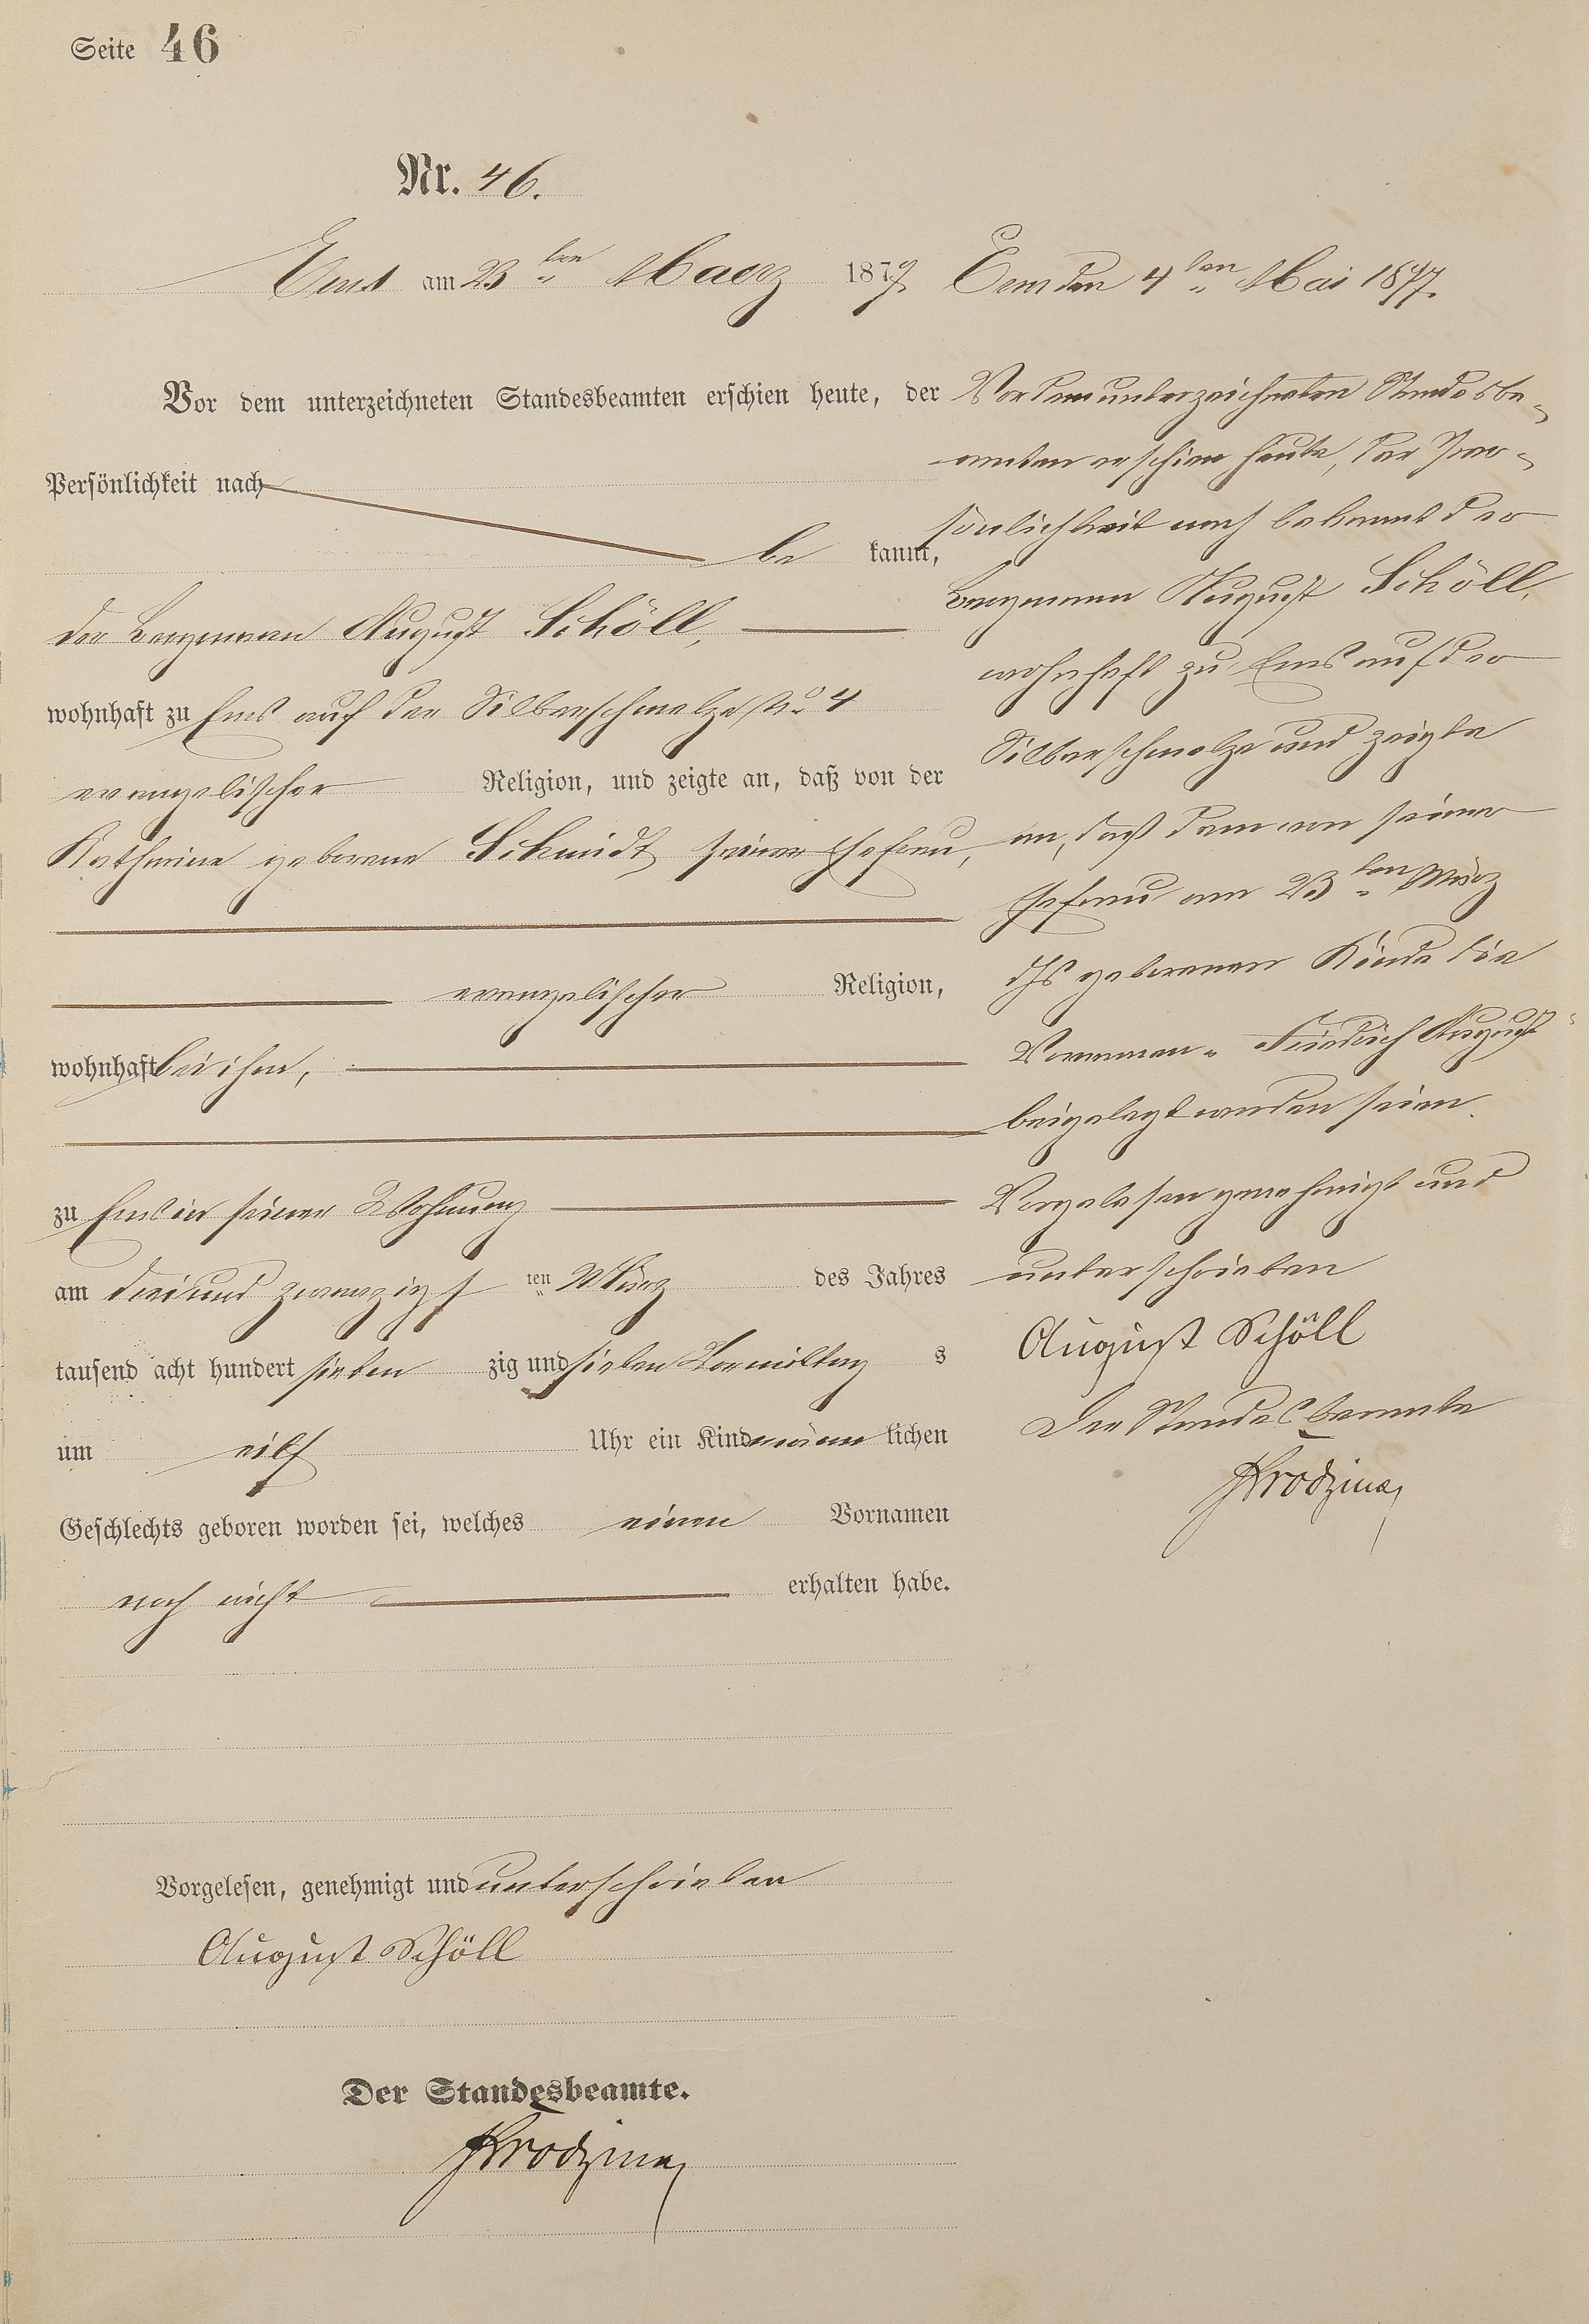 Seite 46
Nr. 46.
Ems am 23ten Maerz 1877.
Vor dem unterzeichneten Standesbeamten erschien heute, der
Persönlichkeit nach
be kannt,
der Bergmann August Schöll,
wohnhaft zu Ems auf der Silberschmelze No 4
evangelischer Religion, und zeigte an, daß von der
Katharina geborene Schmidt, seiner Ehefrau,
evangelischer Religion,
wohnhaft bei ihm,
zu Ems in seiner Wohnung
am drei und zwanzigst ten März des Jahres
tausend acht hundert sieben zig und sieben Vormittag s
um eilf Uhr ein Kind männ lichen
Geschlechts geboren worden sei, welches einen Vornamen
noch nicht erhalten habe.
Vorgelesen, genehmigt und unterschrieben
August Schöll
Der Standesbeamte.
Ems den 4ten Mai 1877.
Vor dem unterzeichneten Standesbe-
amten erschien heute, der Per-
sönlichkeit nach bekannt der
Bergmann August Schöll,
wohnhaft zu Ems auf der
Silberschmelze und zeigte
an, daß dem von seiner
Ehefrau am 23ten März
dJs geborenen Kinde die
Vornamen „Friedrich August“
beigelegt worden seien.
Vorgelesen genehmigt und
unterschrieben
August Schöll
Der Standesbeamte